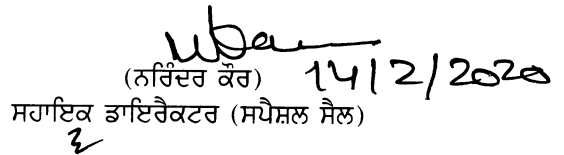 (ਨਰਿੰਦਰ ਕੌਰ) 14/2/2020
ਸਹਾਇਕ ਡਾਇਰੈਕਟਰ (ਸਪੈਸ਼ਲ ਸੈਲ)